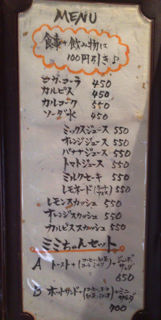 MENU
食事+飲み物にて
100円引き♪
コカ・コーラ 450
カルピス 450
カルコーク 550
ソーダ水 450
ミックスジュース 550
オレンジジュース 550
バナナジュース 550
トマトジュース 550
ミルクセーキ 550
レモネード 550
レモンスカッシュ 550
オレンジスカッシュ 550
カルピススカッシュ 550
ミミちゃんセット
A トースト+
650
B ホットサンド+
700